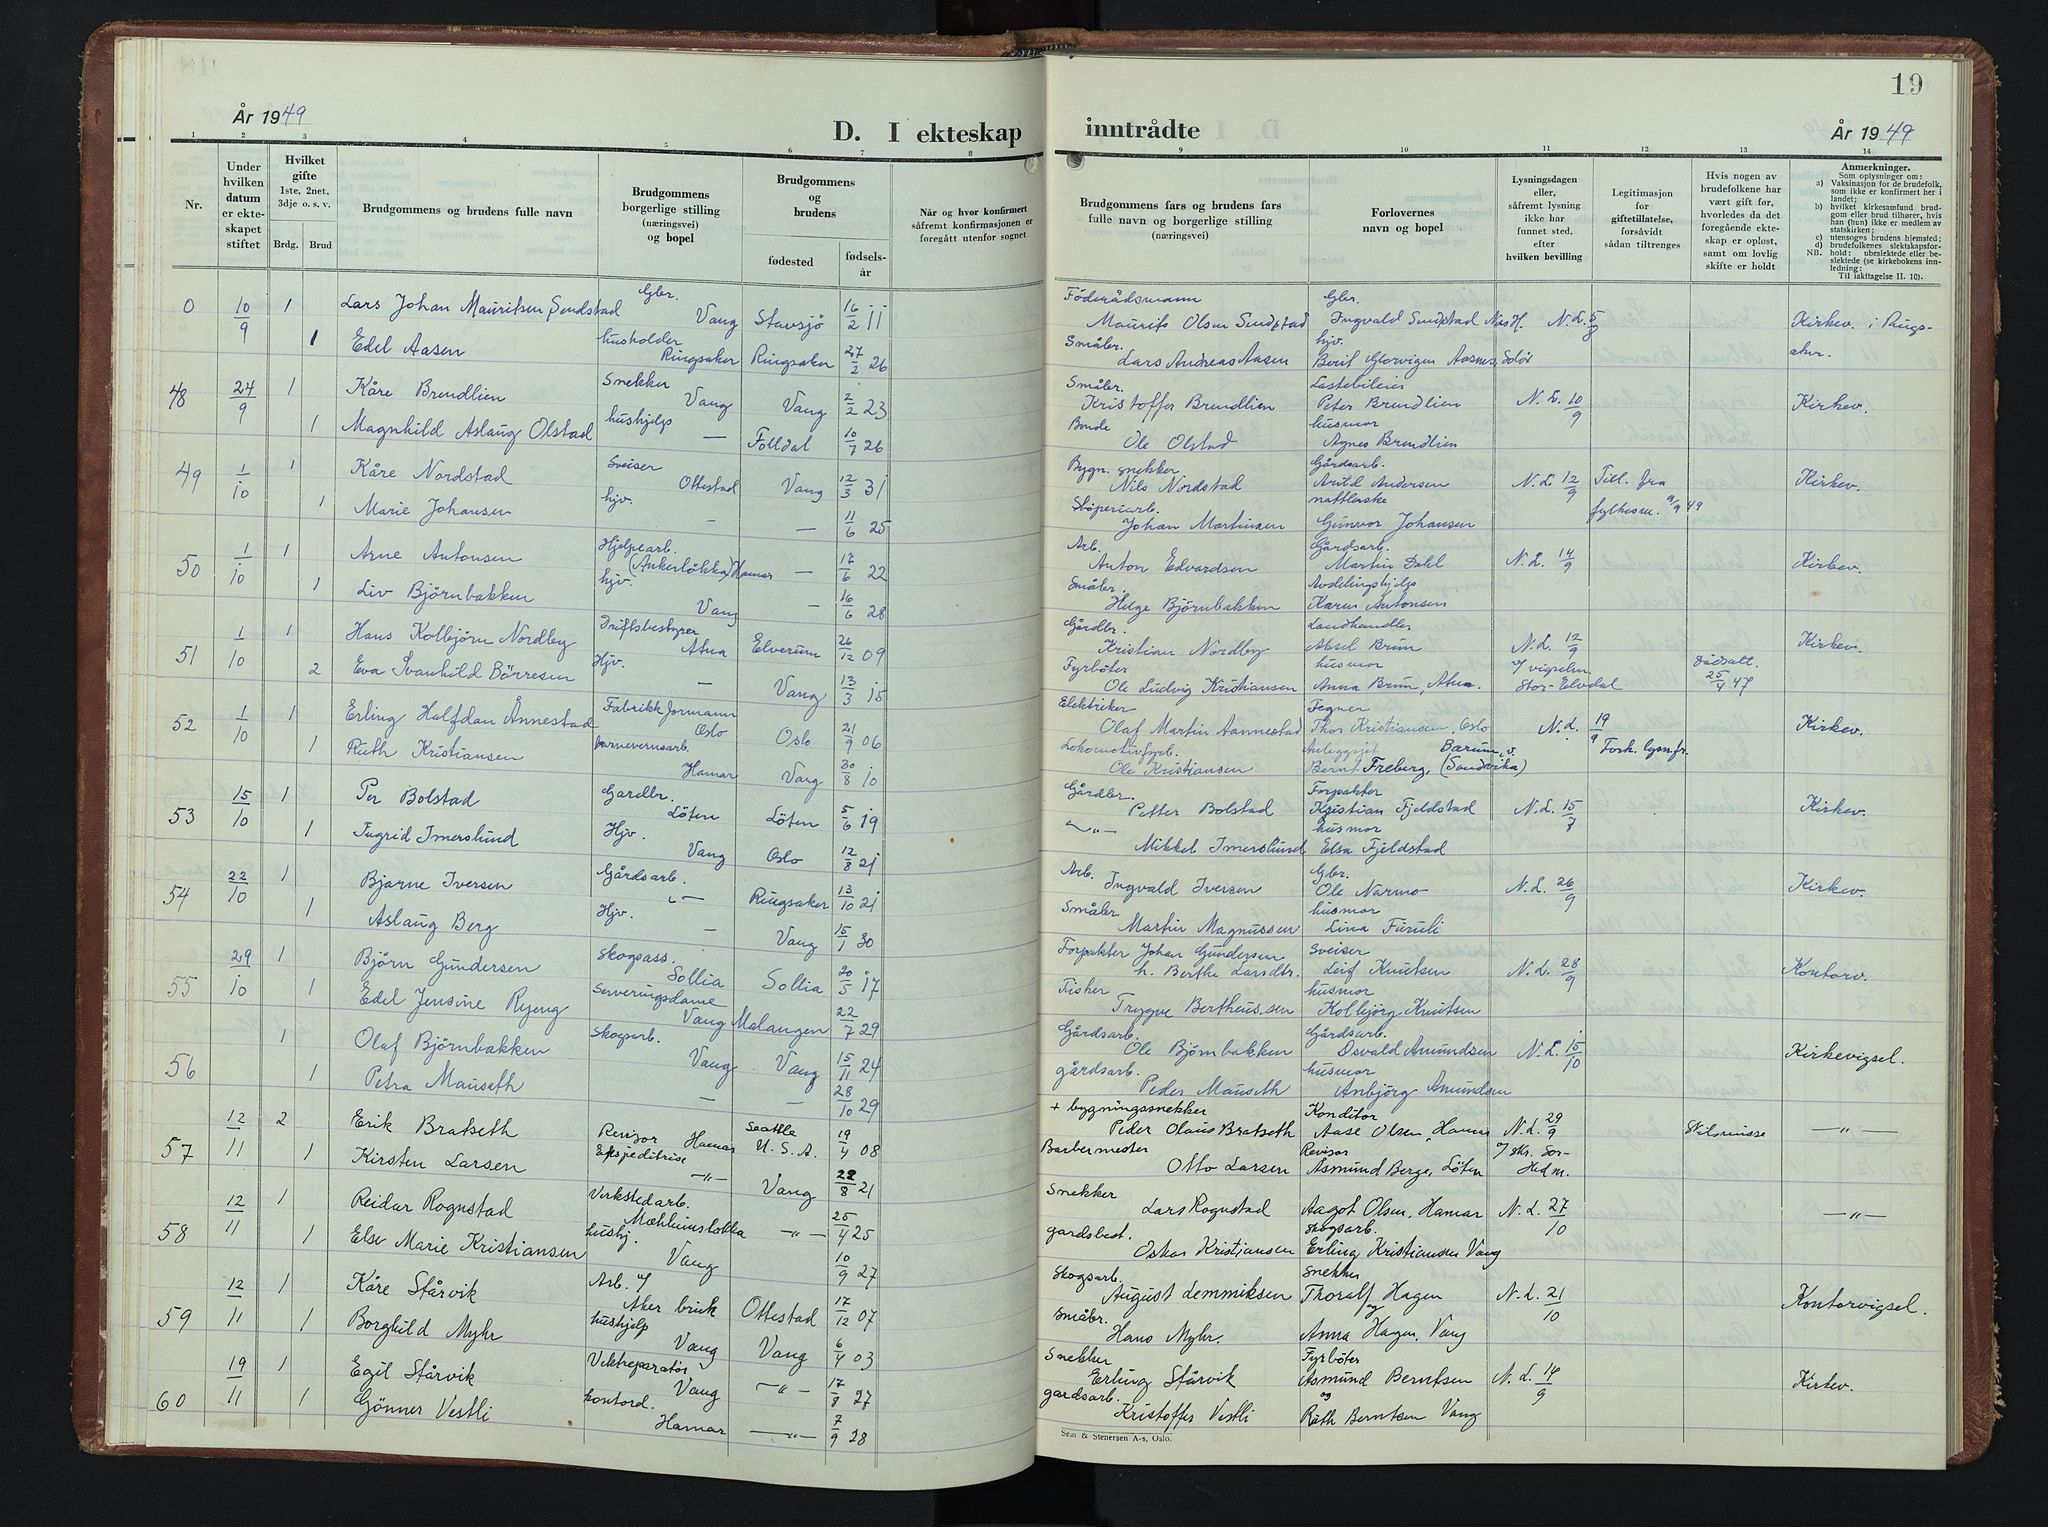 År 1949
D. I ekteskap
1 2 3 4 5 6 7 8
Nr.
Under hvilken datum er ekteskapet stiftet
Hvilket gifte 1ste, 2net, 3dje o. s. v.
Brdg. Brud
Brudgommens og brudens fulle navn
Brudgommens borgerlige stilling (næringsvei) og bopel
Brudgommens og brudens
fødested
fødselsår
Når og hvor konfirmert såfremt konfirmasjonen er foregått utenfor sognet
0 10/9 1 Lars Johan Mauritsen Sendstad Gbr. Vang Stavsjö 16/2 11
1 Edel Aasen husholder Ringsaker Ringsaker 27/2 26
48 24/9 1 Kåre Brendlien Snekker Vang Vang 2/2 23
1 Magnhild Aslaug Olstad hushjelp — Folldal 10/7 26
49 1/10 1 Kåre Nordstad Sveiser Ottestad Vang 12/3 31
1 Marie Johansen hjv. — — 11/6 25
50 1/10 1 Arne Antonsen Hjelpearb. (Ankerløkka) Hamar — 17/6 22
1 Liv Björnbakken hjv. Vang — 16/6 28
51 1/10 1 Hans Kolbjörn Nordby Driftsbestyrer Atna Elverum 26/12 09
2 Eva Svanhild Börresen Hjv. — Vang 13/3 15
52 1/10 1 Erling Halfdan Ånnestad Fabrikkformann Oslo Oslo 21/9 06
1 Ruth Kristiansen barnevernsarb. Hamar Vang 30/8 10
53 15/10 1 Per Bolstad Gardbr. Löten Löten 5/6 19
1 Ingrid Imerslund Hjv. Vang Oslo 12/8 21
54 22/10 1 Bjarne Iversen Gårdsarb. — " — Ringsaker 13/10 21
1 Aslaug Berg Hjv. — Vang 15/1 30
55 29/10 1 Björn Gundersen Skogsass. Sollia Sollia 20/5 17
1 Edel Jensine Ryeng Serveringsdame Vang Malangen 22/7 29
56 1 Olaf Björnbakken Skogsarb. Vang Vang 15/11 24
1 Petra Mauseth — — 28/10 29
57 12/11 2 Erik Bratseth Revisor Hamar Seattle U. S. A. 19/4 08
1 Kirsten Larsen Ekspeditrise — " — Vang 22/8 21
58 12/11 1 Reidar Rognstad Verkstedarb. Mæhlumsløkka — " — 25/4 25
1 Else Marie Kristiansen hushj. Vang 10/9 27
59 12/11 1 Kåre Stårvik Arb. v/ Aker bruk Ottestad 17/12 07
1 Borghild Myhr hushjelp Vang Vang 6/4 03
60 19/11 1 Egil Stårvik Vektreparatör Vang — " — 17/8 27
1 Gönner Vestli kontord. Hamar — " — 7/9 28
19
inntrådte
År 1949
9 10 11 12 13 14
Brudgommens fars og brudens fars fulle navn og borgerlige stilling (næringsvei)
Forlovernes navn og bopel
Lysningsdagen eller, såfremt lysning ikke har funnet sted, efter hvilken bevilling
Legitimasjon for giftetillatelse, forsåvidt sådan tiltrenges
Hvis nogen av brudefolkene har vært gift før, hvorledes da det foregående ekteskap er opløst, samt om lovlig skifte er holdt
Anmerkninger.
Som oplysninger om:
a) Vaksinasjon for de brudefolk, som ikke er konfirmert her i landet;
b) hvilket kirkesamfund brudgom eller brud tilhører, hvis han (hun) ikke er medlem av statskirken;
c) utensogns brudens hjemsted;
d) brudefolkenes slektskapsforhold: ubeslektede eller beslektede (se kirkebokens innledning: Til iakttagelse II. 10).
NB.
Föderådsmann Maurits Olsen Sendstad Gbr. Ingvald Sendstad Nes H. N. L. 5/8 Kirkev. i Rings-
Småbr. Lars Andreas Aasen hjv. Berit Glorvigen Aasnes, Solör aker.
Småbr. Kristoffer Brendlien Lastebileier Peter Brendlien N. L. 10/9 Kirkev.
Bonde Ole Olstad husmor Agnes Brendlien
Bygn. snekker Nils Nordstad Gårdsarb. Arild Andersen N. L. 12/9 Till. fra Kirkev.
Støperiarb. Johan Martinsen Gunvor Johansen fylkesm. 9/9 49
Arb. Anton Edvardsen Gårdsarb. Martin Dahl N. L. 14/9 Kirkev.
Småbr. Helge Björnbakken Avdelingshjelp Karin Antonsen
Gårdbr. Kristian Nordby Landhandler Aksel Brun N. L. 12/9 Kirkev.
Fyrböter Ole Ludvig Kristiansen husmor Anna Brun, Atna. v/ vigselm. Stor-Elvdal dödsatt. 25/4 47
Elektriker Olaf Martin Aannestad Tegner Thor Kristiansen, Oslo N. L. 19/9 Kirkev.
Lokomotivfyrb. Ole Kristiansen Bernt Freberg, Bærum v. (Sandvika) Fork. lysn.fr.
Gårdbr. Petter Bolstad Forpakter Kristian Fjeldstad N. L. 15/8 Kirkev.
— " — Mikkel Imerslund husmor Elsa Fjeldstad
Arb. Ingvald Iversen Gbr. Ole Narmo N. L. 26/9 Kirkev.
Småbr. Martin Magnussen husmor Lina Furuli
Forpakter Johan Gundersen h. Berthe Larsdtr. Sveiser Leif Knutsen N. L. 28/9 Kontorv.
Fisker Trygve Bertheussen husmor Kolbjörg Knutsen
Gårdsarb. Ole Björnbakken Gårdsarb. Osvald Amundsen N. L. 15/10 Kirkevigsel.
gårdsarb. Peder Mauseth husmor Anbjörg Amundsen
+ bygningssnekker Peder Olaus Bratseth Konditor Aase Olsen, Hamar N. L. 29/9 Skilsmisse — " —
Barbermester Otto Larsen Revisor Asmund Berge, Löten v/ skr. Sör-Hedm.
Snekker Lars Rognstad Aagot Olsen, Hamar N. L. 27/10 — " —
gardsbest. Oskar Kristiansen skogsarb. Erling Kristiansen Vang
Skogsarb. August Lemmiksen Snekker Thoralf Hagen N. L. 21/10 Kontorvigsel.
Småbr. Hans Myhr og Anna Hagen, Vang
Snekker Erling Stårvik Fyrböter Asmund Berntsen N. L. 14/9 Kirkev.
gardsarb. Kristoffer Vestli og Ruth Berntsen Vang
Sem & Stenersen A-s, Oslo.